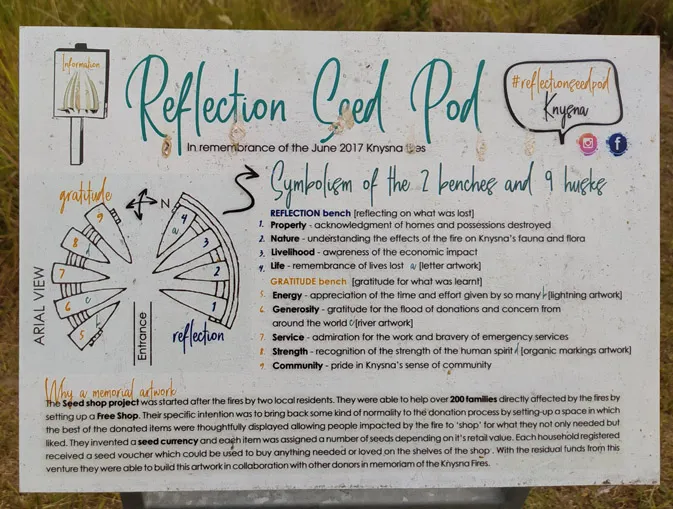 Information
Reflection Seed Pod
#reflectionseedpod
Knysna
In remembrance of the June 2017 Knysna fires
Symbolism of the 2 benches and 9 husks
gratitude
N
9
8
7
6
5
4
3
2
1
a
d
c
b
ARIAL VIEW
Entrance
reflection
REFLECTION bench [reflecting on what was lost]
1. Property - acknowledgment of homes and possessions destroyed
2. Nature - understanding the effects of the fire on Knysna's fauna and flora
3. Livelihood - awareness of the economic impact
4. Life - remembrance of lives lost a [letter artwork]
GRATITUDE bench [gratitude for what was learnt]
5. Energy - appreciation of the time and effort given by so many b [lightning artwork]
6. Generosity - gratitude for the flood of donations and concern from
around the world c [river artwork]
7. Service - admiration for the work and bravery of emergency services
8. Strength - recognition of the strength of the human spirit d [organic markings artwork]
9. Community - pride in Knysna's sense of community
Why a memorial artwork
The Seed shop project was started after the fires by two local residents. They were able to help over 200 families directly affected by the fires by
setting up a Free Shop. Their specific intention was to bring back some kind of normality to the donation process by setting-up a space in which
the best of the donated items were thoughtfully displayed allowing people impacted by the fire to 'shop' for what they not only needed but
liked. They invented a seed currency and each item was assigned a number of seeds depending on it's retail value. Each household registered
received a seed voucher which could be used to buy anything needed or loved on the shelves of the shop. With the residual funds from this
venture they were able to build this artwork in collaboration with other donors in memoriam of the Knysna Fires.